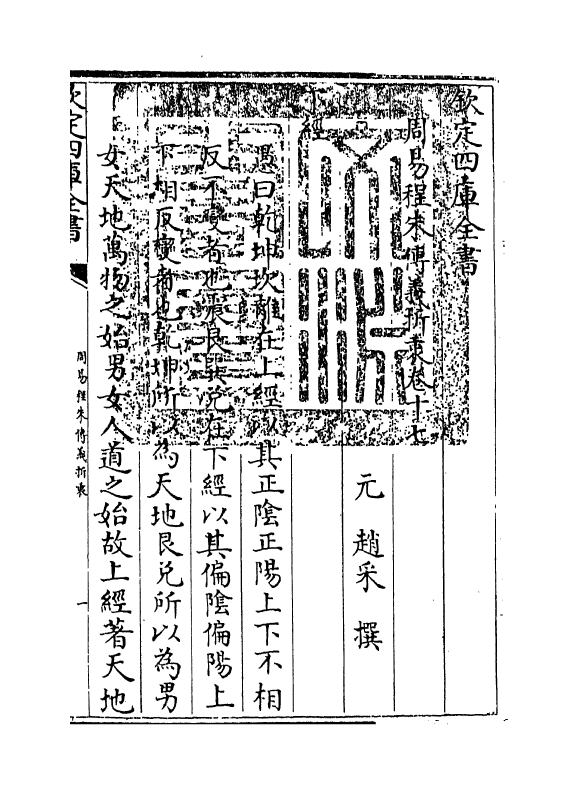 欽定四庫全書
周易程朱傳義折衷卷十七
元 趙采 撰
經
愚曰乾坤坎離在上經以其正陰正陽上下不相
反不變者也震艮巽兌在下經以其偏陰偏陽上
下相反變者也乾坤所以為天地艮兌所以為男
女天地萬物之始男女人道之始故上經著天地
欽定四庫全書
周易程朱傳義折衷
一
文淵閣寶